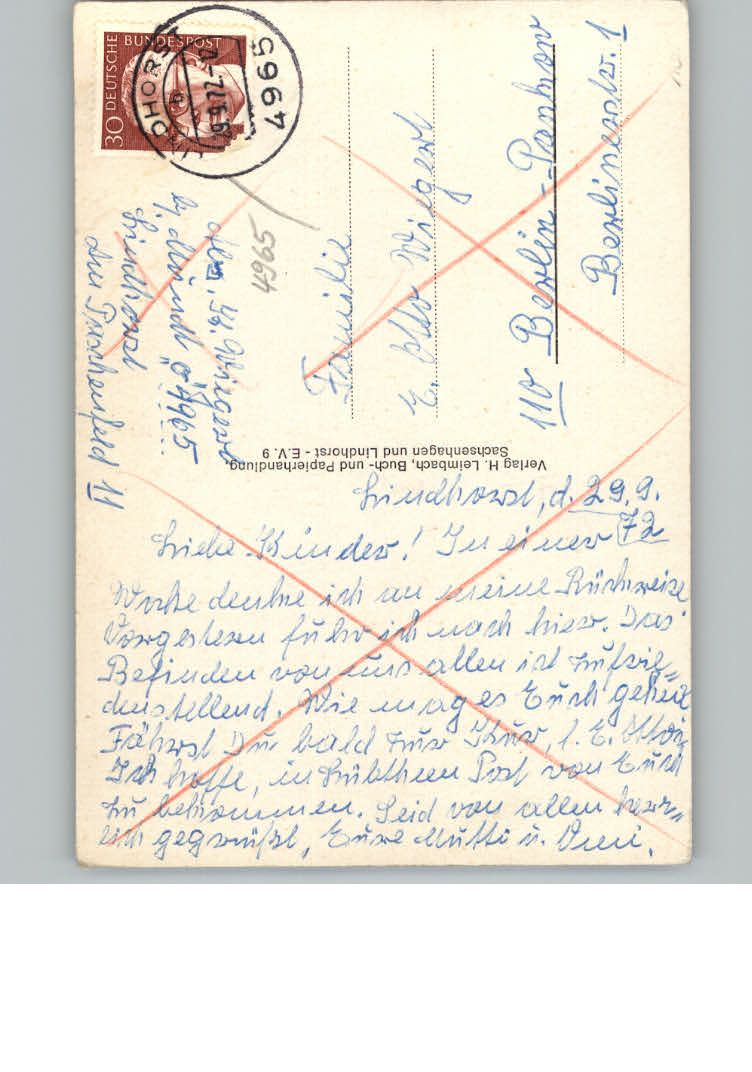 Lindhorst, d. 29.9.
72
Liebe Kinder! In einer
Woche denke ich an meine Rückreise
Vorgestern fuhr ich nach hier. Das
Befinden von uns allen ist zufrie=
denstellend. Wie mag es Euch gehen
Fährst Du bald zur Kur, l. E. Otto?
Ich hoffe, in Lübtheen Post von Euch
zu bekommen. Seid von allen herz=
lich gegrüßt, Eure Mutti u. Omi.
Verlag H. Leimbach, Buch- und Papierhandlung,
Sachsenhagen und Lindhorst - E.V. 9
Wiegert
4965
Lindhorst
11
4965
30 DEUTSCHE BUNDESPOST
LINDHORST
b
29.9.72
4965
Familie
E. Otto Wiegert
110 Berlin-Pankow
Berlinerstr. 1